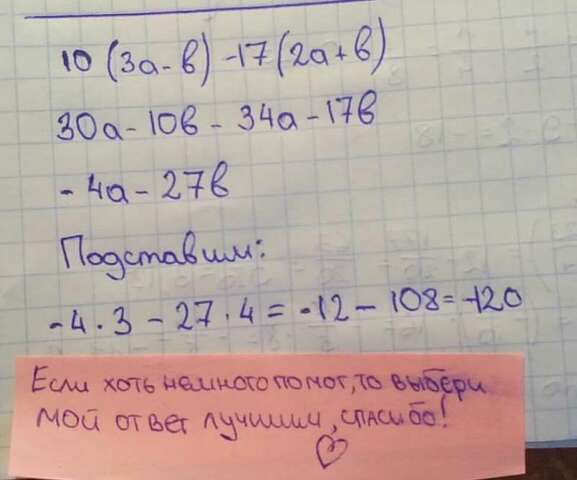 10 (3а - в) - 17 (2а + в)
30а - 10в - 34а - 17в
- 4а - 27в
Подставим:
- 4 · 3 - 27 · 4 = -12 - 108 = -120
Если хоть немного помог, то выбери
мой ответ лучшим, спасибо!